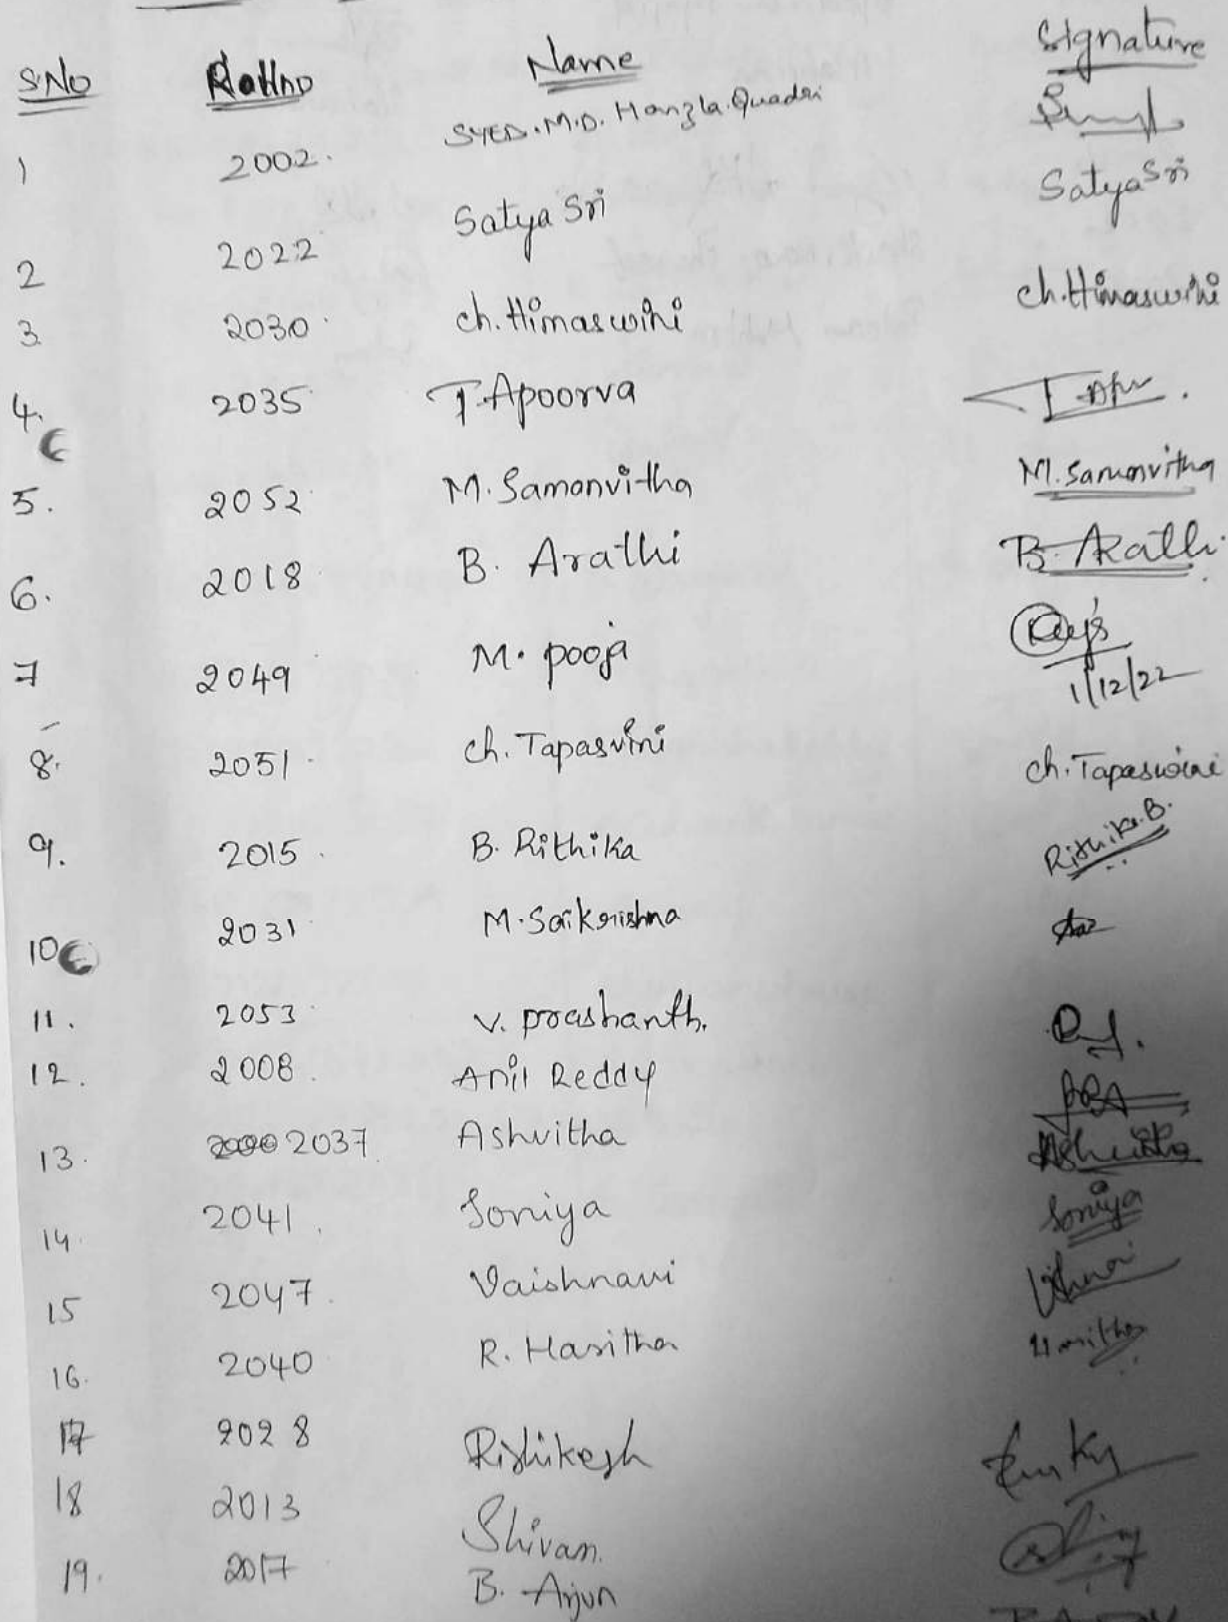 S.No Rollno Name Signature
1 2002. SYED.M.D. Hanzla.Quadri
2 2022 Satya Sri Satya Sri
3 2030 ch. Himaswini ch. Himaswini
4. 2035 T. Apoorva
5. 2052 M. Samanvitha M. Samanvitha
6. 2018 B. Arathi B. Arathi
7 2049 M. pooja 1/12/22
8. 2051 ch. Tapasvini ch. Tapaswini
9. 2015 B. Rithika Rithika.B.
10 2031 M. Saikrishna
11. 2053 V. prashanth.
12. 2008 Anil Reddy
13. 2037 Ashvitha Ashvitha
14. 2041 Soniya Soniya
15 2047 Vaishnavi
16. 2040 R. Haritha
17 2028 Rishikesh
18 2013 Shivan.
19. 2017 B. Arjun